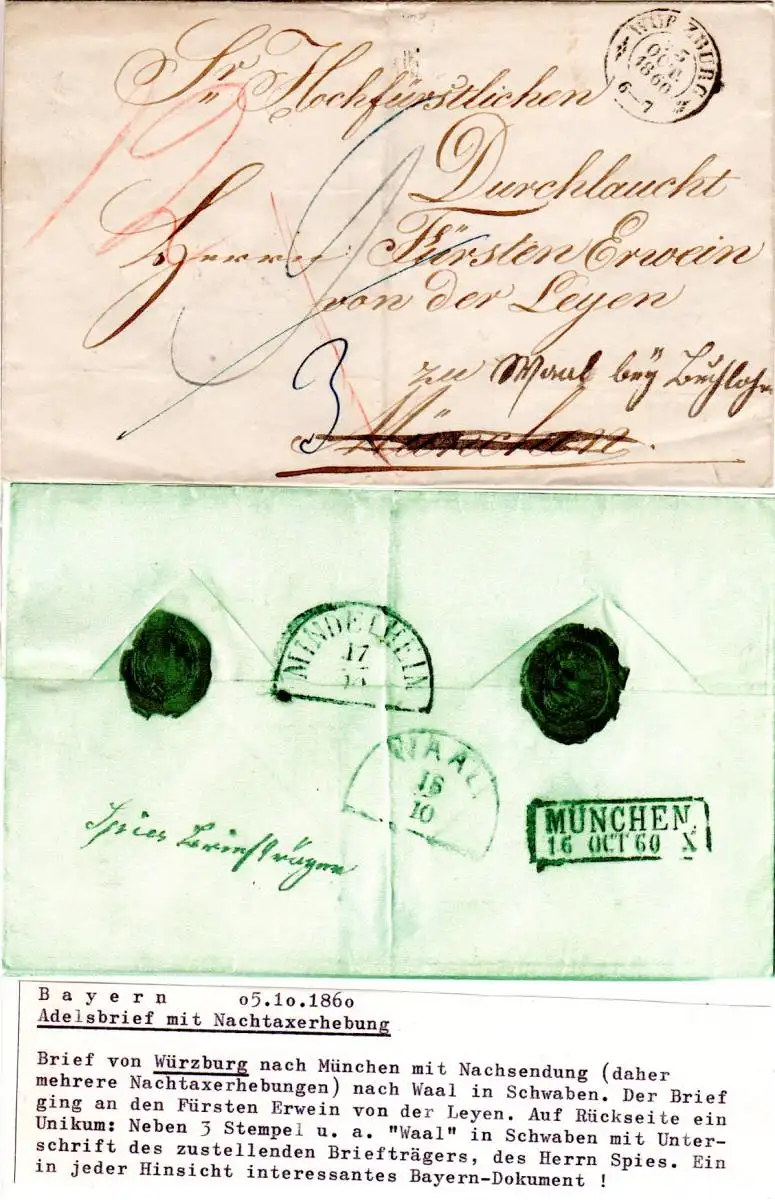 WÜRZBURG
OCT.
1860
6-7
Sr Hochfürstlichen
Durchlaucht
Herrn Fürsten Erwein
von der Leyen
zu Waal bey Buchlohe
3 München.
MINDELHEIM
17
10
WAAL
16
10
MÜNCHEN.
16 OCT 60 X
Spies Briefträger
Bayern o5.1o.186o
Adelsbrief mit Nachtaxerhebung
Brief von Würzburg nach München mit Nachsendung (daher
mehrere Nachtaxerhebungen) nach Waal in Schwaben. Der Brief
ging an den Fürsten Erwein von der Leyen. Auf Rückseite ein
Unikum: Neben 3 Stempel u. a. "Waal" in Schwaben mit Unter-
schrift des zustellenden Briefträgers, des Herrn Spies. Ein
in jeder Hinsicht interessantes Bayern-Dokument !